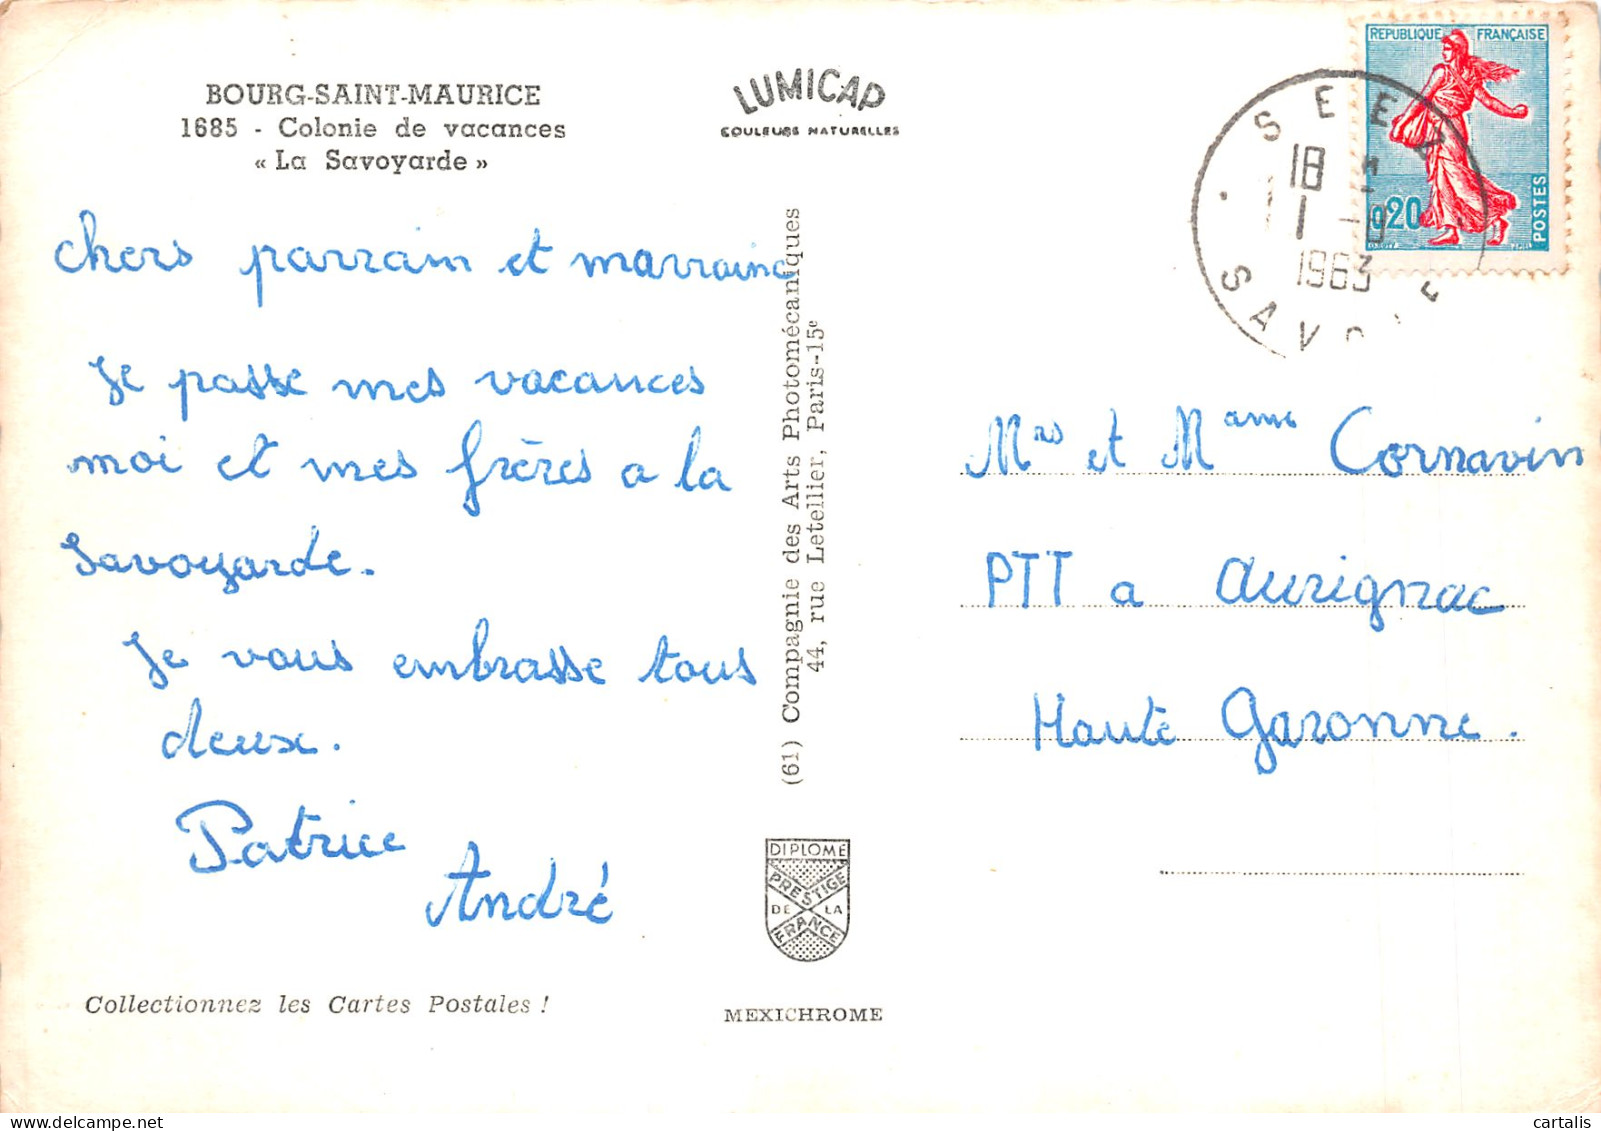 BOURG-SAINT-MAURICE
1685 - Colonie de vacances
« La Savoyarde »
LUMICAP
COULEURS NATURELLES
REPUBLIQUE FRANÇAISE
0,20
POSTES
SEEZ
18 H
1963
SAVOIE
chers parrain et marraine
Je passe mes vacances
moi et mes frères a la
Savoyarde.
Je vous embrasse tous
deux.
Patrice
André
(61) Compagnie des Arts Photomécaniques
44, rue Letellier, Paris-15e
Mrs et Mame Cornavin
PTT a Aurignac
Haute Garonne.
DIPLOME
PRESTIGE
DE LA
FRANCE
Collectionnez les Cartes Postales !
MEXICHROME
cartalis